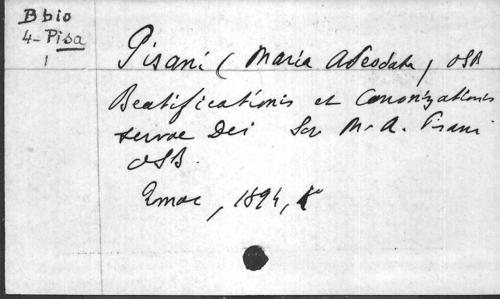 B bio
4-Pisa
1
Pisani (Maria Adeodata, OSB
Beatificationis et Canonizationis
servae Dei Sor M. A. Pisani
OSB.
1894,